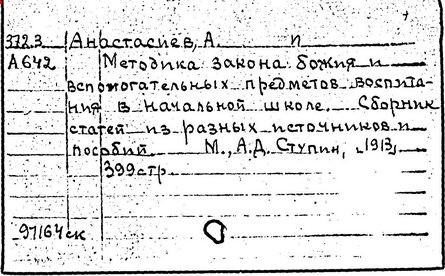 372.3 Анастасиев, А. п
А642 Методика закона божия и
вспомогательных предметов воспита-
ния в начальной школе. Сборник
статей из разных источников и
пособий. М., А.Д. Ступин, 1913,
399стр.
97164ск